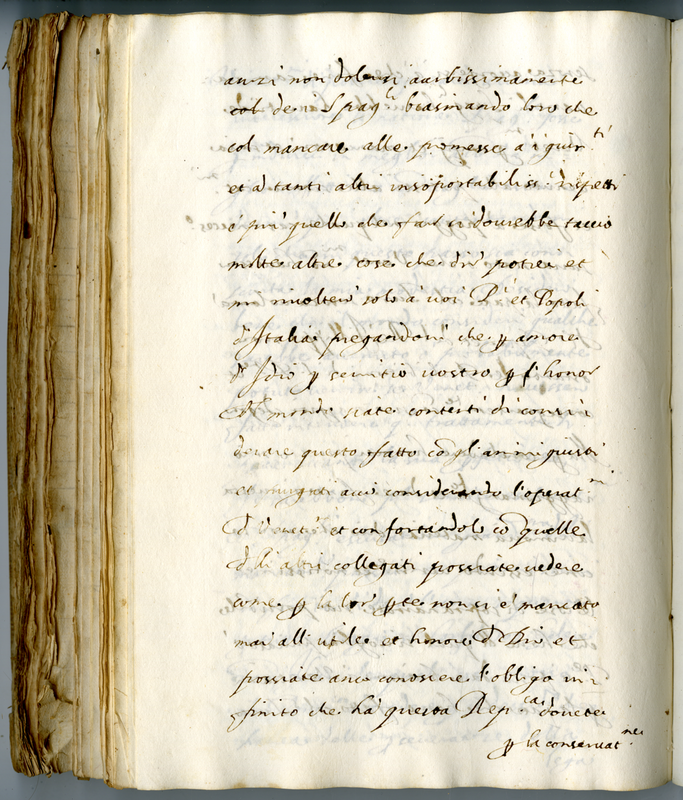 anzi non dolersi acerbissimamente
col de i Spag.li biasmando loro che
col mancare alle promesse a i giur.ti
et à tanti altri insoportabiliss.i rispetti
è più quello che far si dovrebbe taccio
molte altre cose che dir potrei et
mi rivolterò solo à voi P.i et Popoli
d'Italia pregandovi che p amore
d'Idio p servitio vostro p l'honor
del mondo siate contenti di consi
derare questo fatto co gl'animi giusti
et acciò considerando l'operat.ni
d Venetia.ni et confortandole co quelle
d lli altri collegati possiate vedere
come p la lor pte non si è mancato
mai all'utile et honore d Dio et
possiate anco conoscere l'obligo in
finito che ha questa Rep.ca dovete
p la conservat.ne